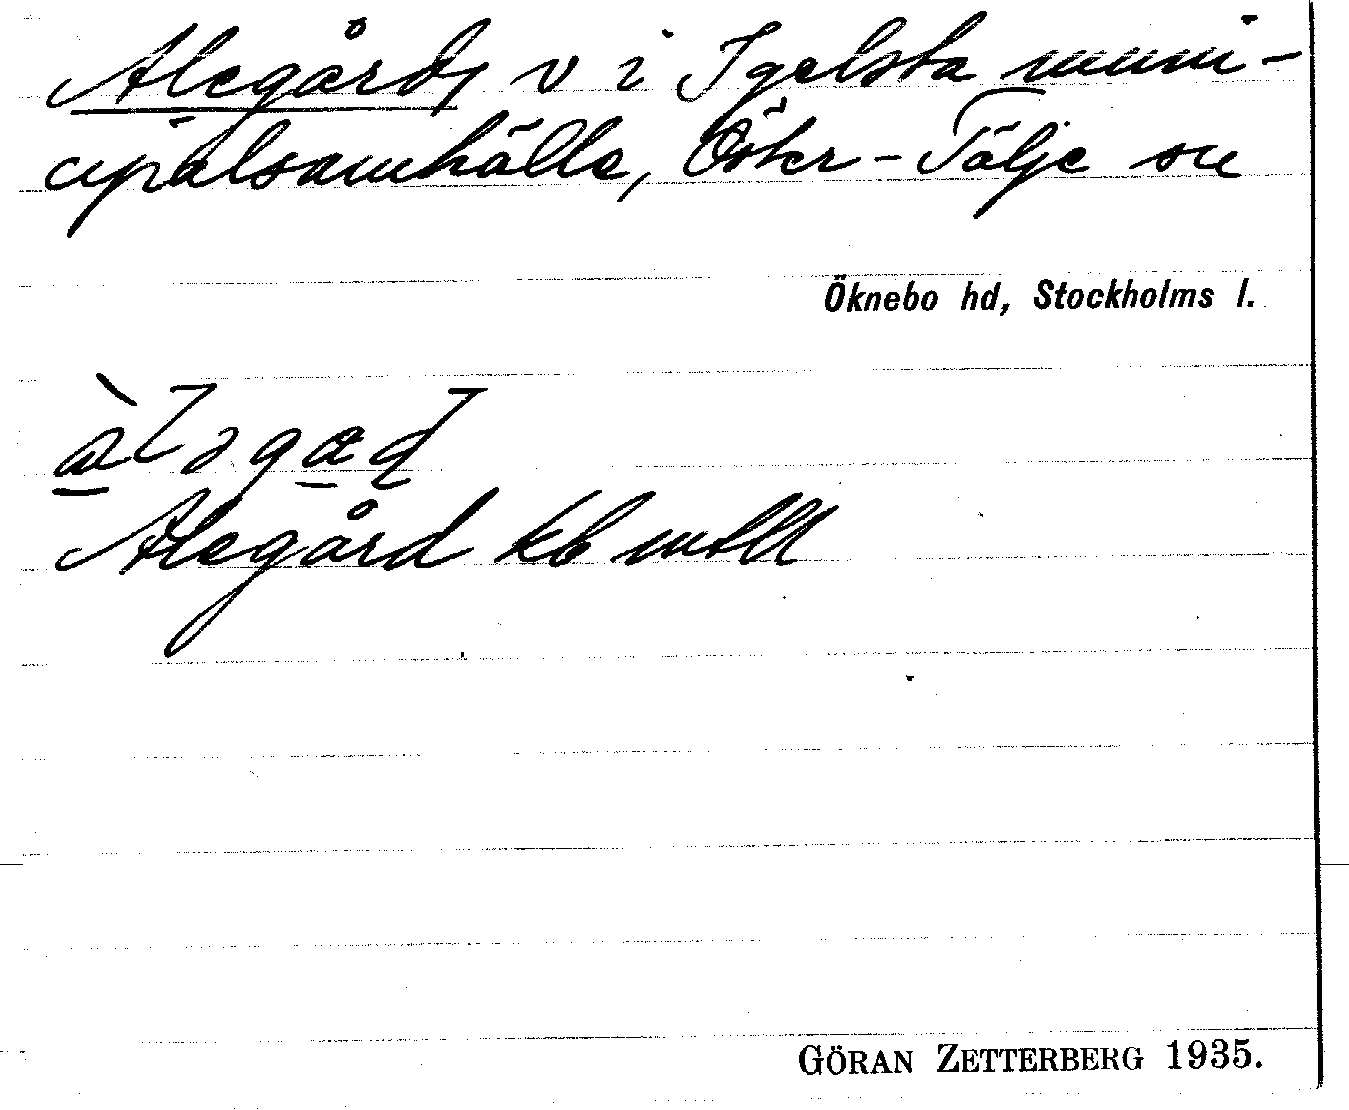 Alegård, v i Igelsta muni-
cipalsamhälle, Öster-Tälje sn
Öknebo hd, Stockholms l.
Alegård kb
GÖRAN ZETTERBERG 1935.